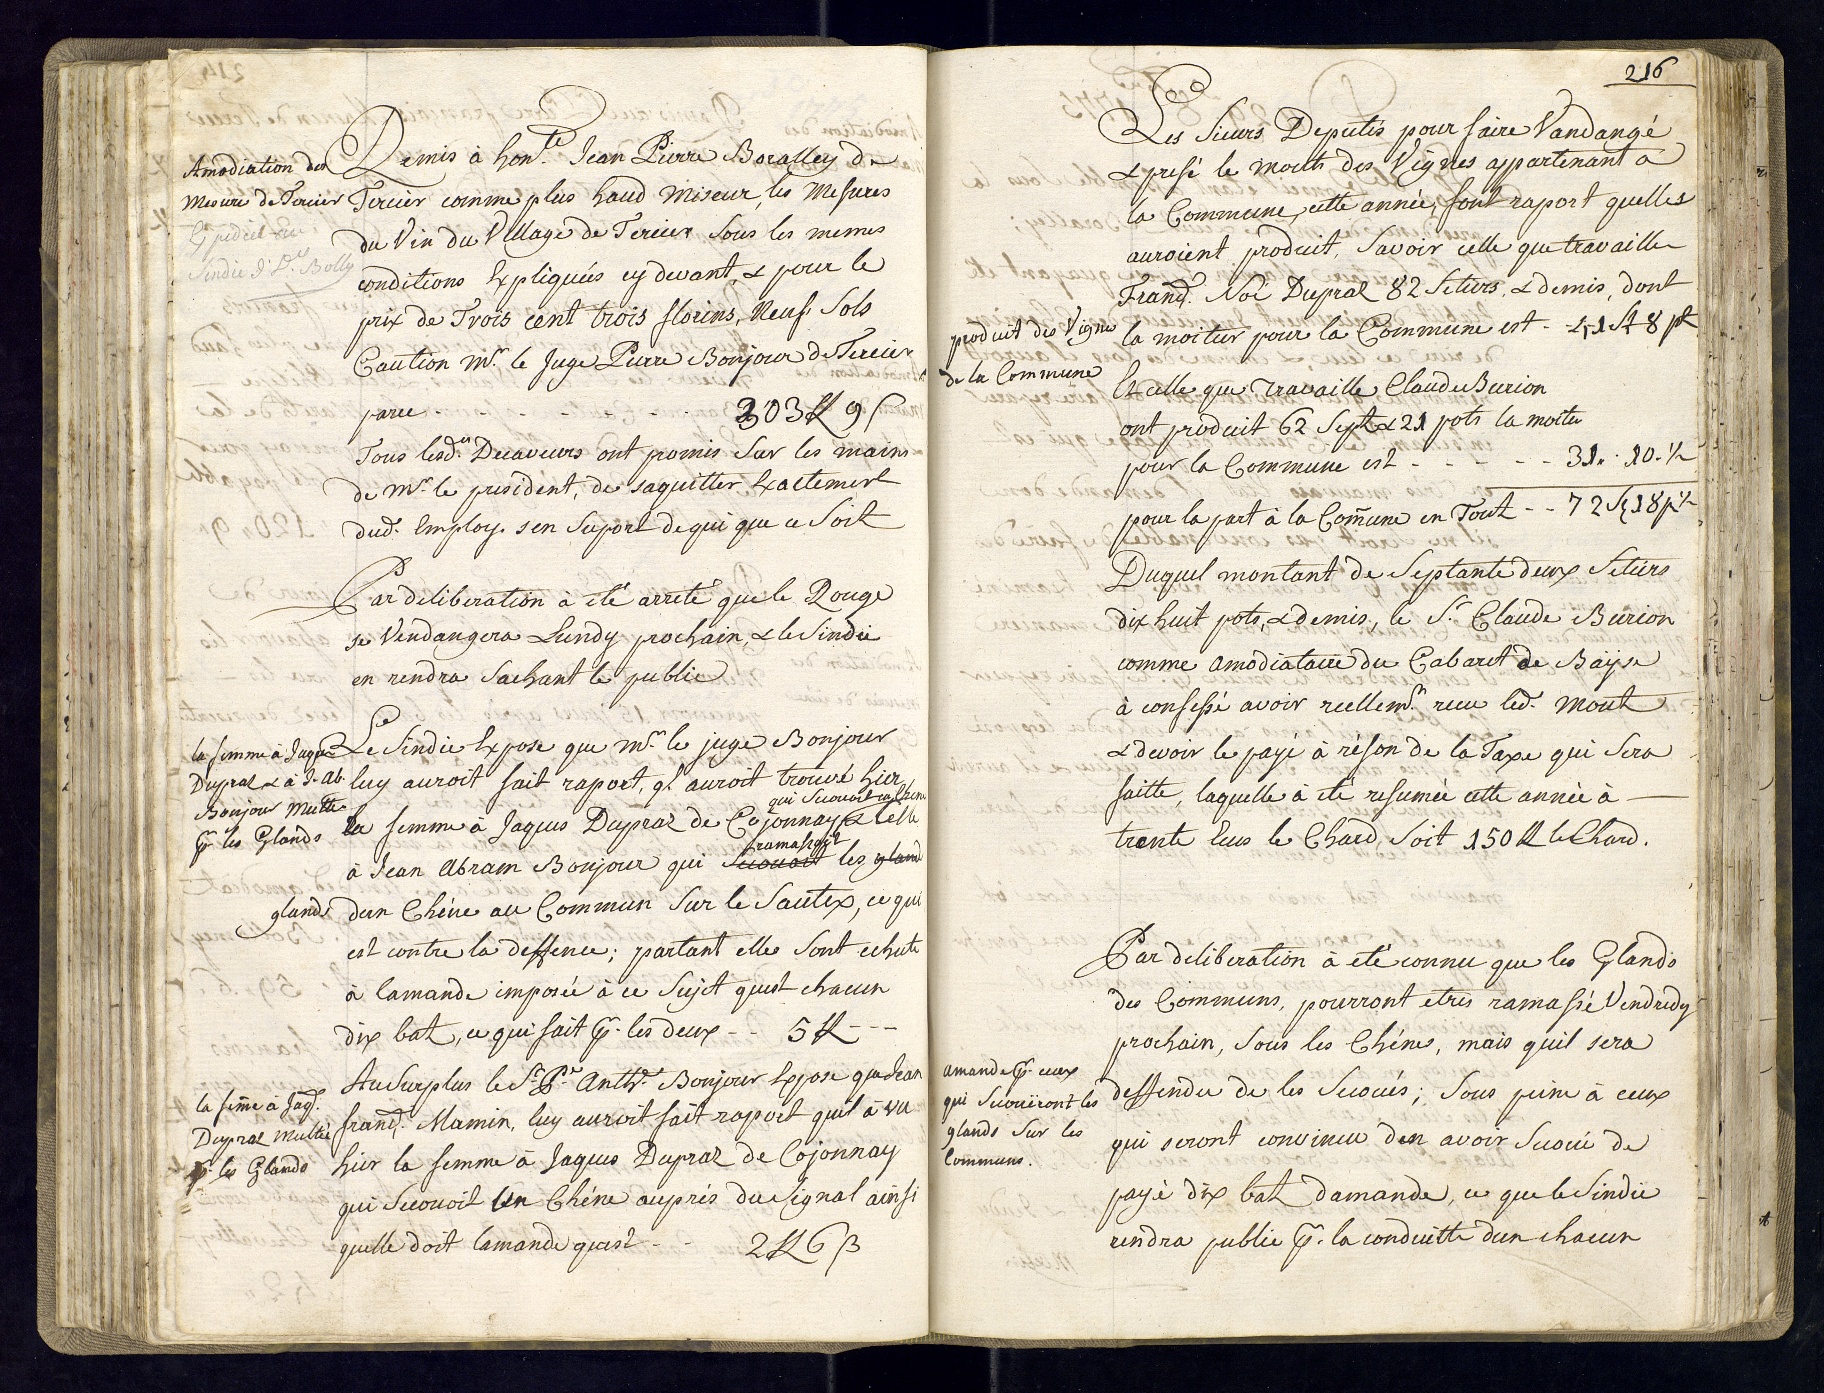 Amodiation des
Mesure de Tercier
Expedié au
Sindic d'Dl. Bolly
Remis à hon.ble Jean Pierre Boralley de
Tercier comme plus haud Miseur, les Mesures
du Vin du Village de Tercier Sous les memes
conditions Expliqués cy devant, & pour le
prix de Trois cent trois florins, Neuf Sols
Caution Mr. le Juge Pierre Bonjour de Tercier
parce - - - - - - 303 ff 9 s
Tous lesd.ts Decaveurs ont promis Sur les mains
de Mr. le president, de saquitter Exactement
dud. Employ. sen Suport de qui que ce Soit
Par deliberation à été arreté que le Rouge
se Vendangera Lundy prochain, & le Sindic
en rendra Sachant le public
la femme à Jaques
Dupraz & à J. Ab.
Bonjour Multé
pr. les Glands
Le Sindic Expose que Mr. le juge Bonjour
luy auroit fait raport, ql. auroit trouvé hier
qui Secouoit un Chene
la femme à Jaques Dupraz de Cojonnay & celle
ramassoit
à Jean Abram Bonjour qui Secouoit les gland
glands dun Chéne au Commun Sur le Sautex, ce qui
est contre la deffence; partant elle Sont echute
à lamande imposée à ce Sujet quest chacun
dix batz, ce qui fait pr. les deux - - 5 ff - - -
la feme à Jaq.
Dupraz Multée
pr. les Glands
Au Surplus le Sr. Pre. Anthe. Bonjour Expose que Jean
franç. Mamin, luy auroit fait raport quil à vu
hier la femme à Jaques Dupraz de Cojonnay
qui Secouoit Un Chéne auprés du Signal ainsi
quelle doit lamande quest - - 2 ff 6 s
216
Les Sieurs Deputés pour faire Vandangé
& presé le mouts des Vignes appartenant à
la Commune, cette année, font raport quelles
auroient produit, Savoir celle que travaille
Franç. Noé Dupraz 82 Setiers, & demis, dont
produit des Vigne
de la Commune
la moitur pour la Commune est - 41 St 8 pt
Et celle que Travaille Claude Burion
ont produit 62 Sept & 21 pots la moitu
pour la Commune est - - - - - 31 " 10 ½
pour la part à la Comune en Tout - - 72 St 18 p ½
Duquel montant de Septante deux Setiers
dix huit pots, & demis, le Sr. Claude Burion
comme amodiataire du Cabaret de Bayse
à confessé avoir reellemt. recu led. Mout
& devoir le payé à réson de la Taxe qui Sera
faitte, laquelle à été resumée cette année à
trente Ecus le Chard, Soit 150 ff le Chard.
Par deliberation à été connu que les Glands
des Communs, pourront etres ramassé Vendredy
prochain, Sous les Chénes, mais quil sera
amande pr. ceux
qui Secouëront les
glands Sur les
Communs.
deffendu de les Secoués; Sous peine à ceux
qui seront convincu den avoir Secoué de
payé dix batz damande, ce que le Sindic
rendra public pr. la conduitte dun chacun